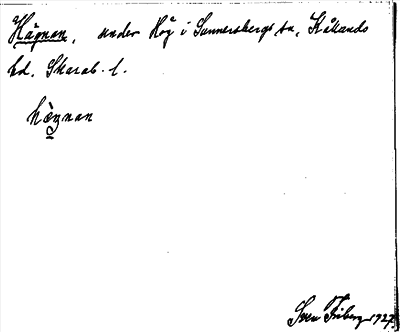 Hägnan, under Hög i Sunnersbergs sn, Kållands
hd. Skarab. l.
hægnan
Sven Friberg 1927